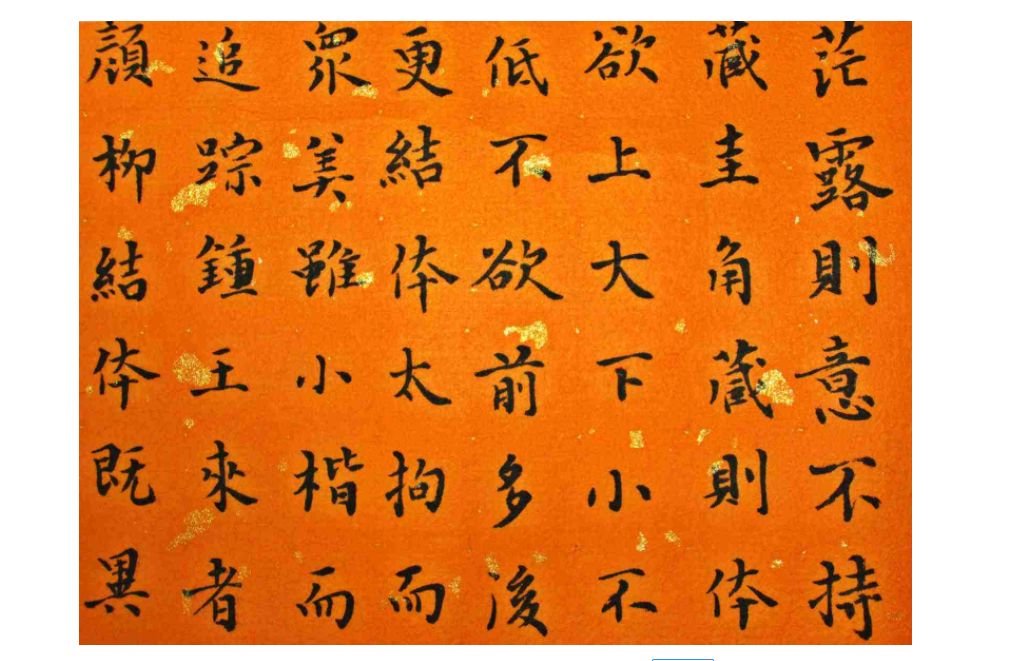 茫露則意不持
藏圭角藏則体
欲上大下小不
低不欲前多後
更結体太拘而
眾美雖小楷而
追踪鍾王來者
顔柳結体既異